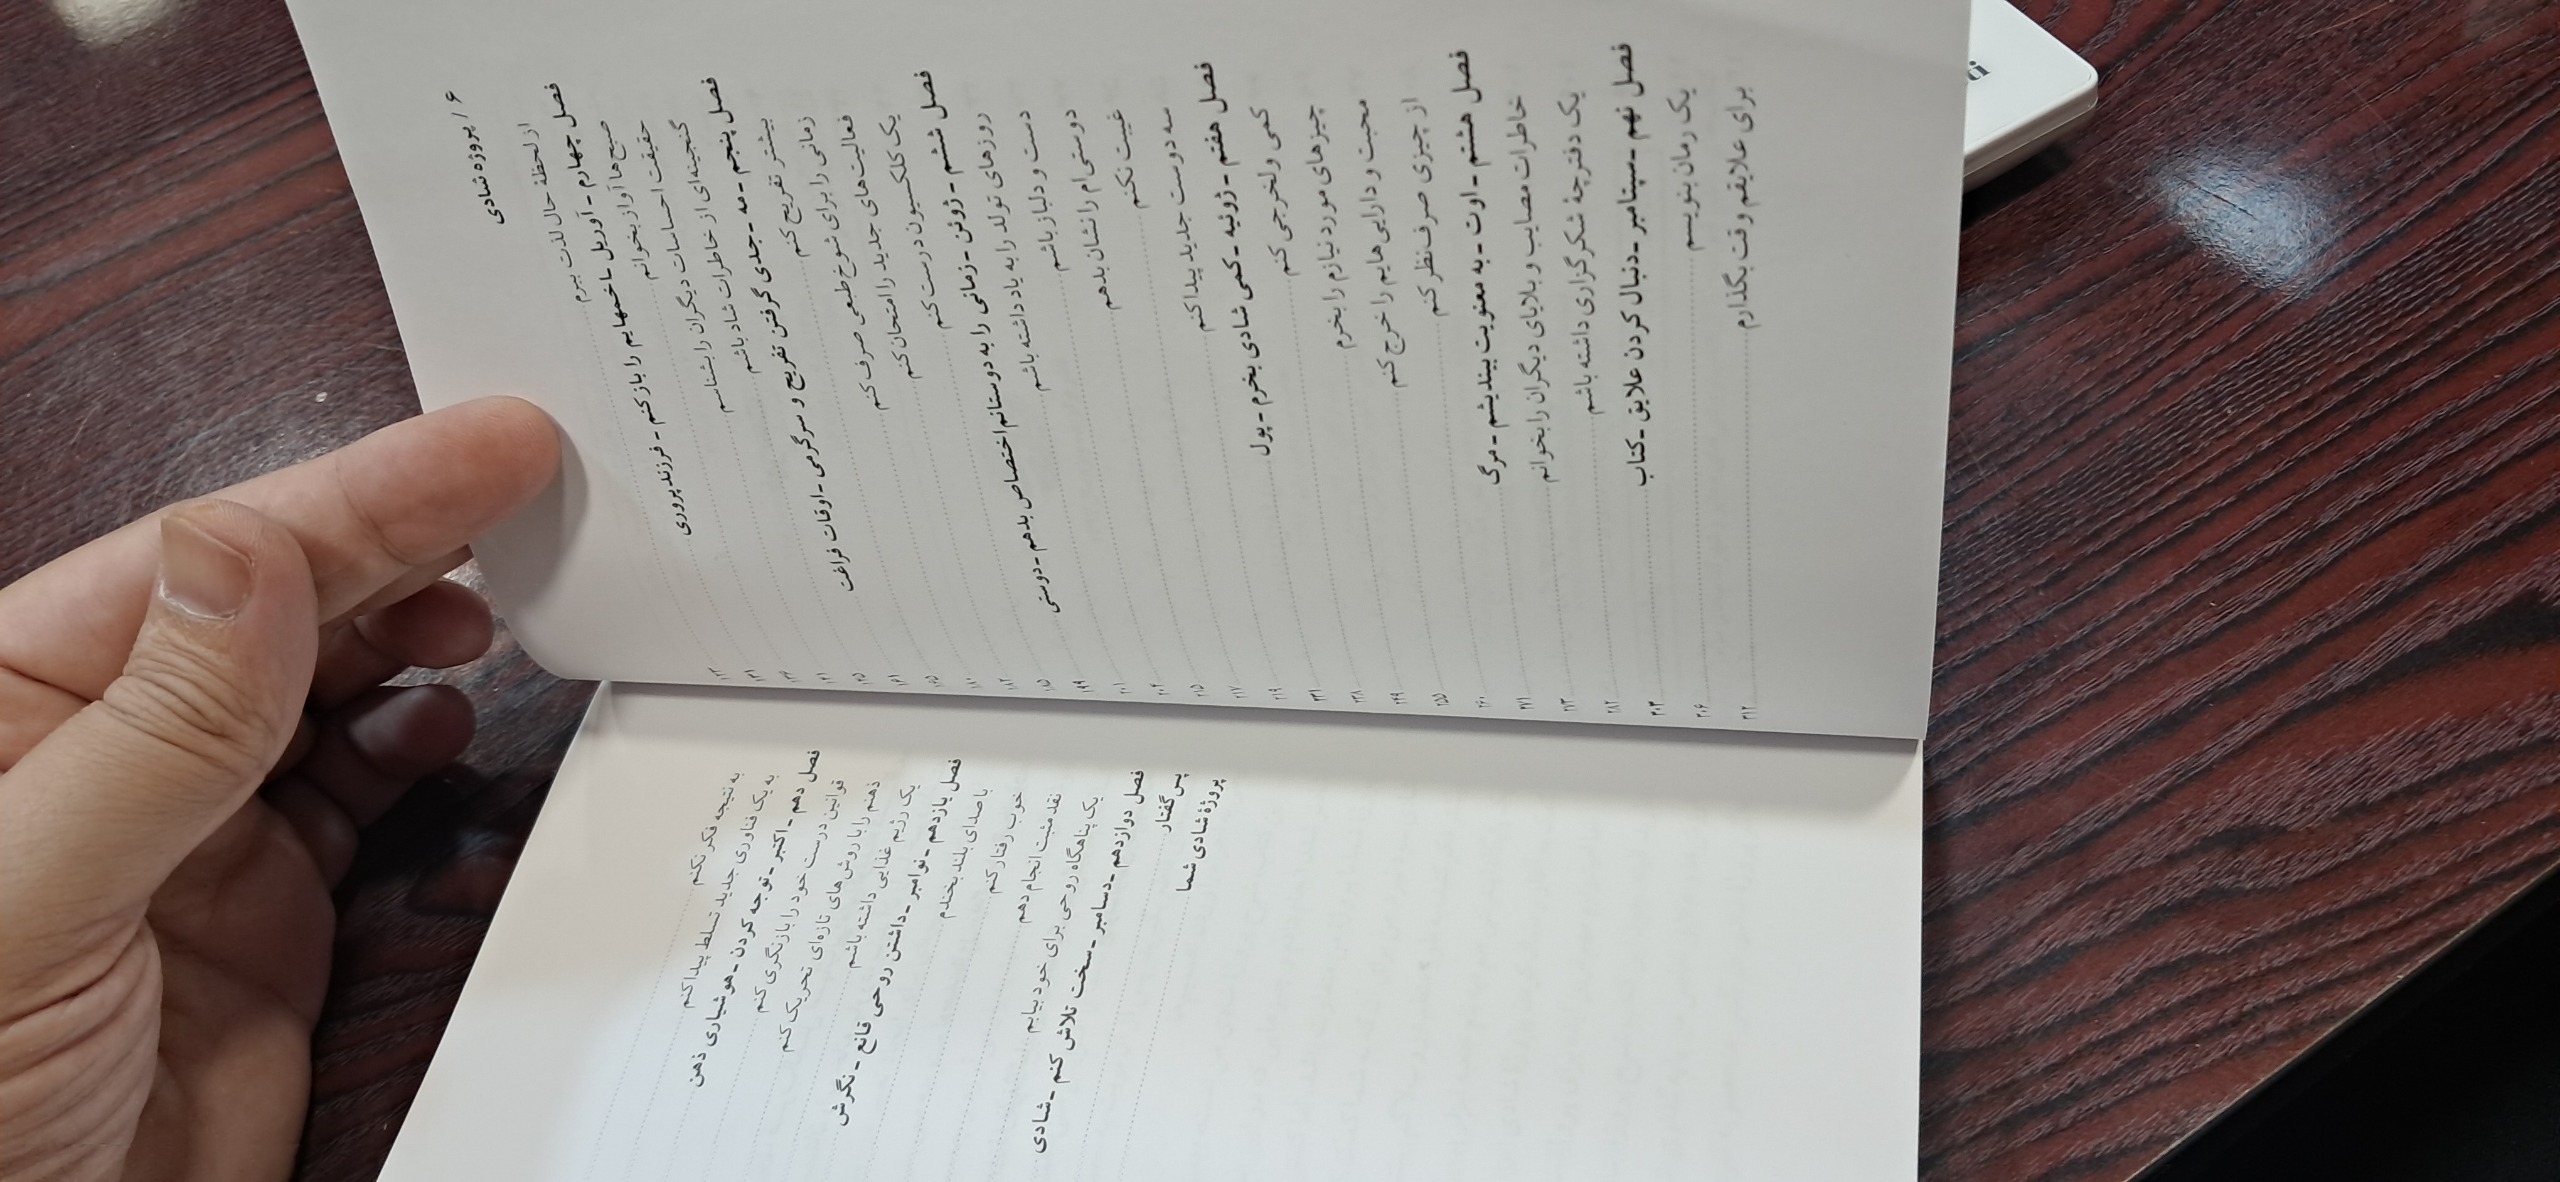 ۶ / پروژه شادی
از لحظهٔ حال لذت ببرم ۱۲۲
فصل چهارم - آوریل - اخمهایم را باز کنم - فرزندپروری ۱۳۱
صبح‌ها آواز بخوانم
حقیقت احساسات دیگران را بشناسم ۱۴۱
گنجینه‌ای از خاطرات شاد باشم
فصل پنجم - مه - جدی گرفتن تفریح و سرگرمی - اوقات فراغت
بیشتر تفریح کنم ۱۶۵
زمانی را برای شوخ‌طبعی صرف کنم ۱۸۰
فعالیت‌های جدید را امتحان کنم ۱۸۲
یک کلکسیون درست کنم ۱۸۵
فصل ششم - ژوئن - زمانی را به دوستانم اختصاص بدهم - دوستی ۱۹۹
روزهای تولد را به یاد داشته باشم ۲۰۱
دست و دلباز باشم ۲۰۲
دوستی‌ام را نشان بدهم ۲۱۵
غیبت نکنم ۲۱۷
سه دوست جدید پیدا کنم ۲۱۹
فصل هفتم - ژوئیه - کمی شادی بخرم - پول ۲۳۱
کمی ولخرجی کنم ۲۳۸
چیزهای مورد نیازم را بخرم ۲۴۹
محبت و دارایی‌هایم را خرج کنم ۲۵۵
از چیزی صرف‌نظر کنم ۲۶۰
فصل هشتم - اوت - به معنویت بیندیشم - مرگ ۲۷۱
خاطرات مصایب و بلایای دیگران را بخوانم ۲۷۳
یک دفترچهٔ شکرگزاری داشته باشم ۲۸۲
فصل نهم - سپتامبر - دنبال کردن علایق - کتاب ۳۰۳
یک رمان بنویسم ۳۰۶
برای علایقم وقت بگذارم ۳۱۲
به نتیجه فکر نکنم
به یک فناوری جدید تسلط پیدا کنم
فصل دهم - اکتبر - توجه کردن - هوشیاری ذهن
قوانین درست خود را بازنگری کنم
ذهنم را با روش‌های تازه‌ای تحریک کنم
یک رژیم غذایی داشته باشم
فصل یازدهم - نوامبر - داشتن روحی قانع - نگرش
با صدای بلند بخندم
خوب رفتار کنم
نقد مثبت انجام دهم
یک پناهگاه روحی برای خود بیابم
فصل دوازدهم - دسامبر - سخت تلاش کنم - شادی
پس گفتار
پروژهٔ شادی شما